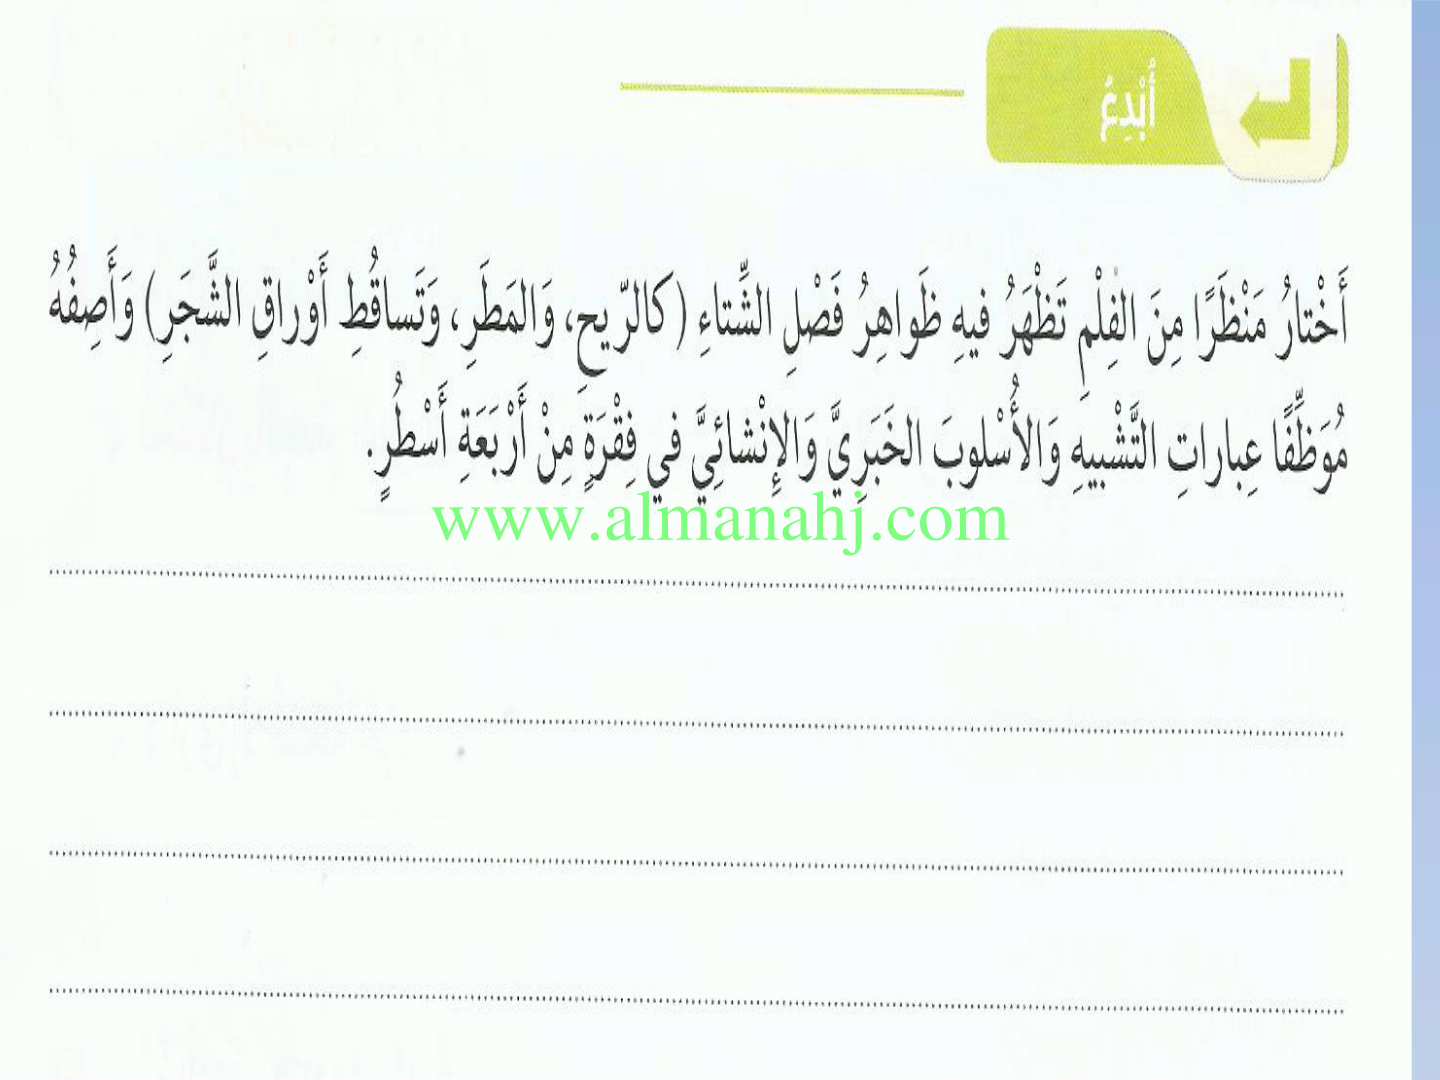 أُبْدِعُ
أَخْتارُ مَنْظَرًا مِنَ الفِلْمِ تَظْهَرُ فيهِ ظَواهِرُ فَصْلِ الشِّتاءِ (كالرّيحِ، وَالمَطَرِ، وَتَساقُطِ أَوْراقِ الشَّجَرِ) وَأَصِفُهُ
مُوَظِّفًا عِباراتِ التَّشْبيهِ وَالأُسْلوبَ الخَبَرِيَّ وَالإِنْشائِيَّ في فِقْرَةٍ مِنْ أَرْبَعَةِ أَسْطُرٍ.
www.almanahj.com